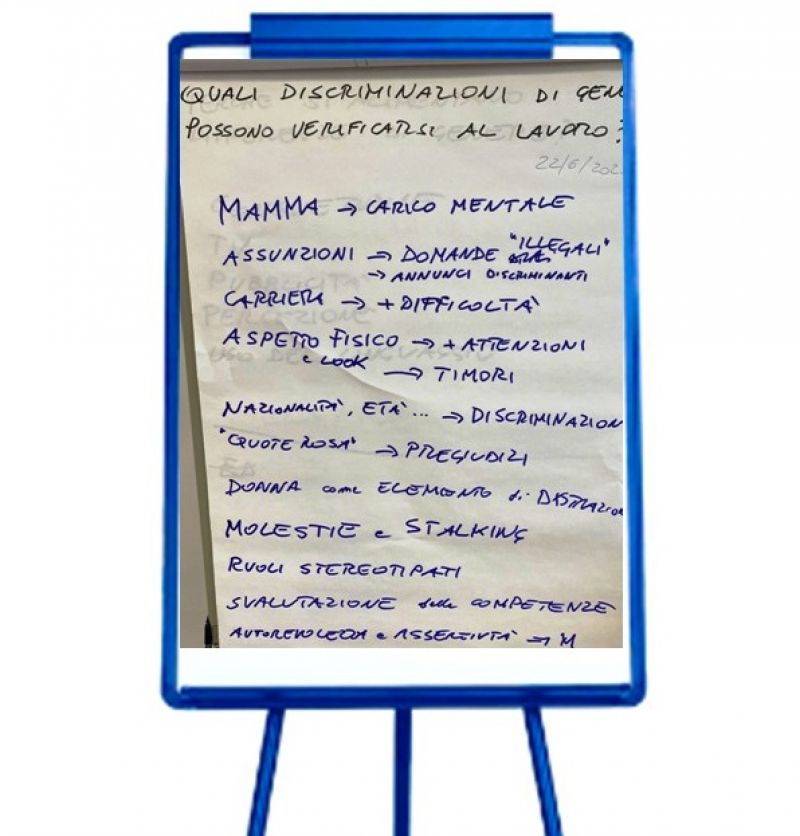 QUALI DISCRIMINAZIONI DI GEN
POSSONO VERIFICARSI AL LAVORO?
22/6/202
MAMMA → CARICO MENTALE
ASSUNZIONI → DOMANDE "ILLEGALI"
→ ANNUNCI DISCRIMINANTI
CARRIERA → + DIFFICOLTÀ
ASPETTO FISICO → + ATTENZIONI
e LOOK → TIMORI
NAZIONALITÀ, ETÀ... → DISCRIMINAZION
"QUOTE ROSA" → PREGIUDIZI
DONNA come ELEMENTO di DISTRAZION
MOLESTIE e STALKING
RUOLI STEREOTIPATI
SVALUTAZIONE delle COMPETENZE
AUTOREVOLEZZA e ASSERTIVITÀ → M